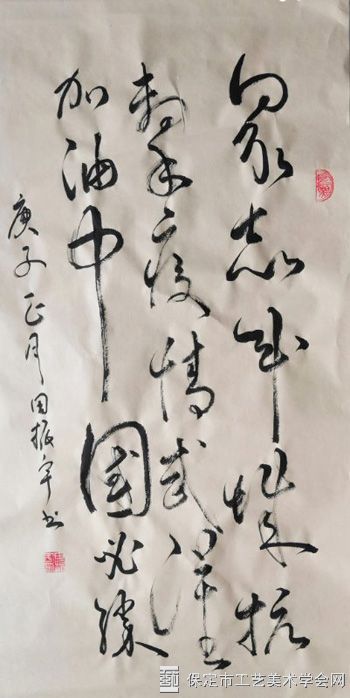 眾志成城抗
擊疫情武漢
加油中國必勝
庚子正月田振宇书
保定市工艺美术学会网